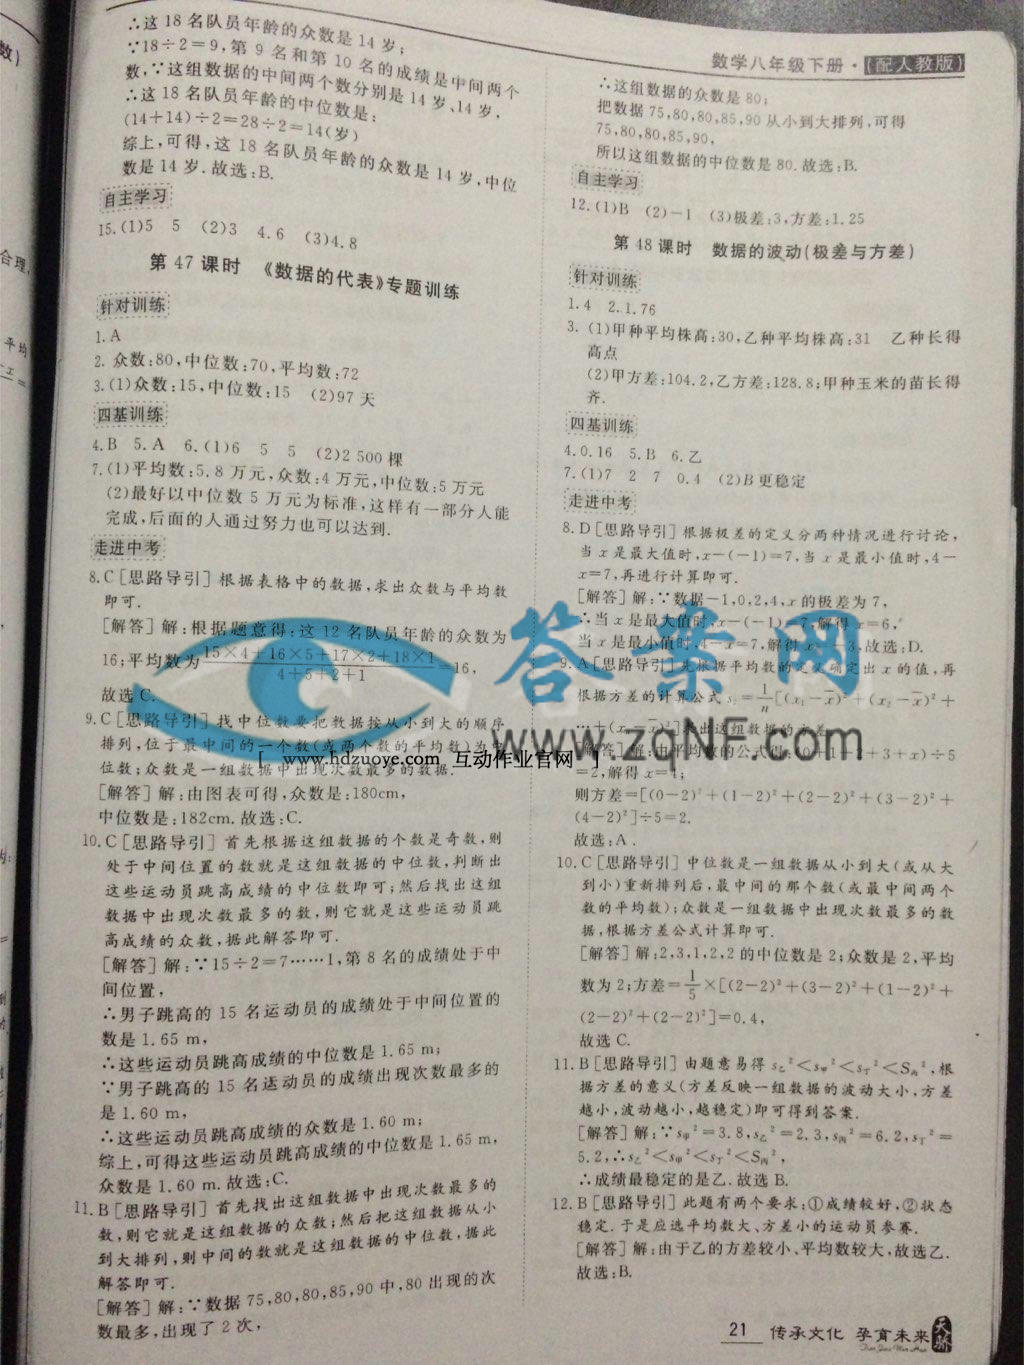 ∴这 18 名队员年龄的众数是 14 岁;
∵18÷2=9,第 9 名和第 10 名的成绩是中间两个
数,∵这组数据的中间两个数分别是 14 岁、14 岁.
∴这 18 名队员年龄的中位数是:
(14+14)÷2=28÷2=14(岁)
综上,可得,这 18 名队员年龄的众数是 14 岁,中位
数是 14 岁.故选:B.
自主学习
15.(1)5 5 (2)3 4.6 (3)4.8
第 47 课时 《数据的代表》专题训练
针对训练
1.A
2.众数:80,中位数:70,平均数:72
3.(1)众数:15,中位数:15 (2)97 天
四基训练
4.B 5.A 6.(1)6 5 5 (2)2 500 棵
7.(1)平均数:5.8 万元,众数:4 万元,中位数:5 万元
(2)最好以中位数 5 万元为标准,这样有一部分人能
完成,后面的人通过努力也可以达到.
走进中考
8.C[思路导引]根据表格中的数据,求出众数与平均数
即可.
[解答]解:根据题意得:这 12 名队员年龄的众数为
16;平均数为 15×4+16×5+17×2+18×1 / 4+5+2+1 =16,
故选 C.
9.C[思路导引]找中位数要把数据按从小到大的顺序
排列,位于最中间的一个数(或两个数的平均数)为中
位数;众数是一组数据中出现次数最多的数据.
[解答]解:由图表可得,众数是:180cm,
中位数是:182cm.故选:C.
10.C[思路导引]首先根据这组数据的个数是奇数,则
处于中间位置的数就是这组数据的中位数,判断出
这些运动员跳高成绩的中位数即可;然后找出这组
数据中出现次数最多的数,则它就是这些运动员跳
高成绩的众数,据此解答即可.
[解答]解:∵15÷2=7……1,第 8 名的成绩处于中
间位置,
∴男子跳高的 15 名运动员的成绩处于中间位置的
数是 1.65 m,
∴这些运动员跳高成绩的中位数是 1.65 m;
∵男子跳高的 15 名运动员的成绩出现次数最多的
是 1.60 m,
∴这些运动员跳高成绩的众数是 1.60 m;
综上,可得这些运动员跳高成绩的中位数是 1.65 m,
众数是 1.60 m.故选:C.
11.B[思路导引]首先找出这组数据中出现次数最多的
数,则它就是这组数据的众数;然后把这组数据从小
到大排列,则中间的数就是这组数据的中位数,据此
解答即可.
[解答]解:∵数据 75,80,80,85,90 中,80 出现的次
数最多,出现了 2 次,
数学八年级下册·【配人教版】
∴这组数据的众数是 80;
把数据 75,80,80,85,90 从小到大排列,可得
75,80,80,85,90,
所以这组数据的中位数是 80.故选:B.
自主学习
12.(1)B (2)-1 (3)极差:3,方差:1.25
第 48 课时 数据的波动(极差与方差)
针对训练
1.4 2.1.76
3.(1)甲种平均株高:30,乙种平均株高:31 乙种长得
高点
(2)甲方差:104.2,乙方差:128.8;甲种玉米的苗长得
齐.
四基训练
4.0.16 5.B 6.乙
7.(1)7 2 7 0.4 (2)B 更稳定
走进中考
8.D[思路导引]根据极差的定义分两种情况进行讨论,
当 x 是最大值时,x-(-1)=7,当 x 是最小值时,4-
x=7,再进行计算即可.
[解答]解:∵数据-1,0,2,4,x 的极差为 7,
∴当 x 是最大值时,x-(-1)=7,解得 x=6,
当 x 是最小值时,4-x=7,解得 x=-3,故选:D.
9.A[思路导引]先根据平均数的定义确定出 x 的值,再
根据方差的计算公式 s²=1/n[(x₁-x̄)²+(x₂-x̄)²+
…+(xₙ-x̄)²]求出这组数据的方差.
[解答]解:由平均数的公式得:(0+1+2+3+x)÷5
=2,解得 x=4;
则方差=[(0-2)²+(1-2)²+(2-2)²+(3-2)²+
(4-2)²]÷5=2.
故选:A.
10.C[思路导引]中位数是一组数据从小到大(或从大
到小)重新排列后,最中间的那个数(或最中间两个
数的平均数);众数是一组数据中出现次数最多的数
据,根据方差公式计算即可.
[解答]解:2,3,1,2,2 的中位数是 2;众数是 2,平均
数为 2;方差=1/5×[(2-2)²+(3-2)²+(1-2)²+
(2-2)²+(2-2)²]=0.4,
故选 C.
11.B[思路导引]由题意易得 s乙²<s甲²<s丁²<S丙²,根
据方差的意义(方差反映一组数据的波动大小,方差
越小,波动越小,越稳定)即可得到答案.
[解答]解:∵s甲²=3.8,s乙²=2.3,s丙²=6.2,s丁²=
5.2,∴s乙²<s甲²<s丁²<S丙²,
∴成绩最稳定的是乙.故选 B.
12.B[思路导引]此题有两个要求:①成绩较好,②状态
稳定.于是应选平均数大、方差小的运动员参赛.
[解答]解:由于乙的方差较小、平均数较大,故选乙.
故选:B.
21 传承文化 孕育未来
天骄
答案网
www.zqNF.com
[ www.hdzuoye.com 互动作业官网 ]